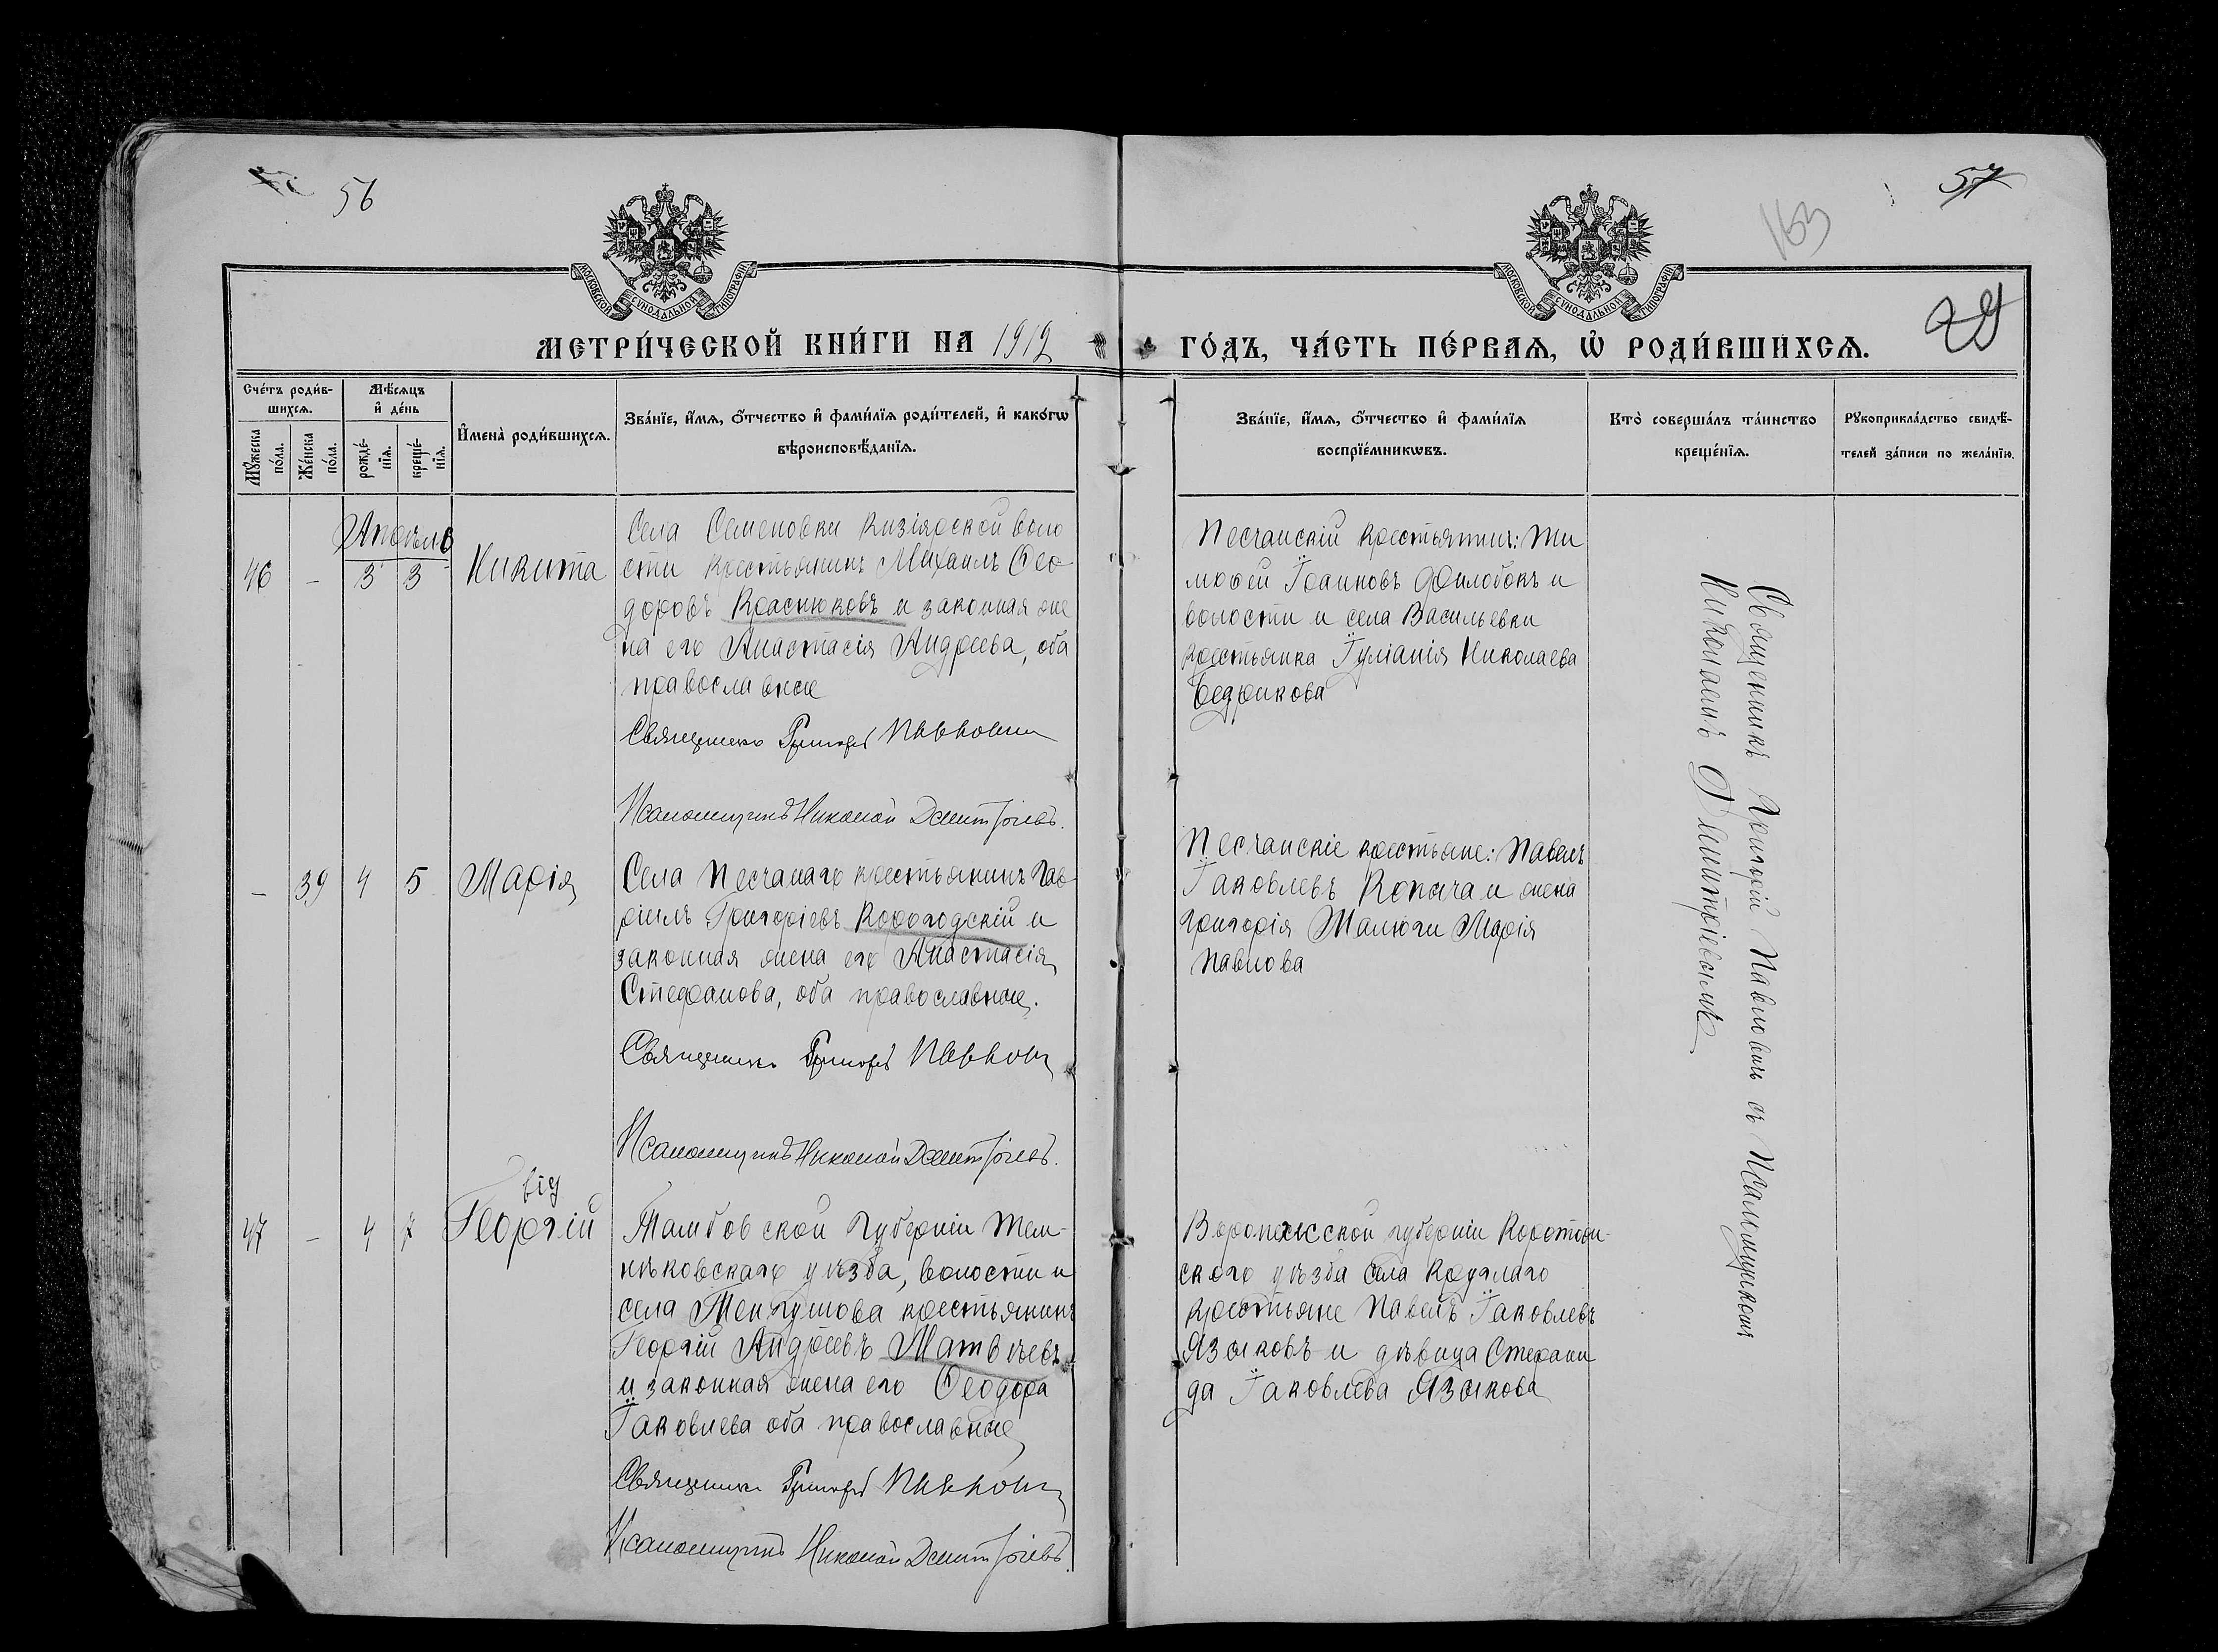 56
57
163
29
МОСКОВСКОЙ СѴНОДАЛЬНОЙ ТИПОГРАФІИ
МОСКОВСКОЙ СѴНОДАЛЬНОЙ ТИПОГРАФІИ
МЕТРИ́ЧЕСКОЙ КНИ́ГИ НА 1912
ГО́ДЪ, ЧА́СТЬ ПЕ́РВАѦ, Ѡ҆ РОДИ́ВШИХСѦ.
Сче́тъ роди́в-
шихсѧ.
Мѣ́сѧцъ
и҆ де́нь
Мꙋ́жеска
по́ла.
Же́нска
по́ла.
рожде́-
нїѧ.
креще́-
нїѧ.
И҆мена̀ роди́вшихсѧ.
Зва́нїе, и҆́мѧ, ѻ҆́тчество и҆ фами́лїѧ роди́телей, и҆ како́гѡ
вѣроисповѣ́данїѧ.
Зва́нїе, и҆́мѧ, ѻ҆́тчество и҆ фами́лїѧ
воспрїе́мникѡвъ.
Кто̀ соверша́лъ та́инство
креще́нїѧ.
Рꙋкоприкла́дство свидѣ́-
телей за́писи по жела́нїю.
Апрѣль
46 - 3 3 Никита
Села Семеновки Кизіярской воло
сти крестьянинъ Михаилъ Ѳео-
доровъ Краснюковъ и законная же
на его Анастасія Андреева, оба
православные
Священникъ Григорій Павловичъ
Псаломщикъ Николай Дмитріевъ.
Песчанскій крестьянинъ: Ти
моѳей Іоанновъ Филобокъ и
волости и села Васильевки
крестьянка Іуліанія Николаева
Бедрикова
- 39 4 5 Марія
Села Песчанаго крестьянинъ Гав-
ріилъ Григоріевъ Корогодскій и
законная жена его Анастасія
Стефанова, оба православные.
Священникъ Григорій Павловичъ
Псаломщикъ Николай Дмитріевъ.
Песчанскіе крестьяне: Павелъ
Іаковлевъ Копыча и жена
Григорія Малюги Марія
Павлова
47 - 4 7 Георгій
Тамбовской губерніи Тем-
никовскаго уѣзда, волости и
села Теньгушова крестьянинъ
Георгій Андреевъ Матвѣевъ
и законная жена его Ѳеодора
Іаковлева оба православные
Священникъ Григорій Павловичъ
Псаломщикъ Николай Дмитріевъ.
Воронежской губерніи Коротоя-
скаго уѣзда села Круглаго
крестьяне Павелъ Іаковлевъ
Языковъ и дѣвица Стефани
да Іаковлева Языкова
Священникъ Григорій Павловичъ съ Псаломщикомъ
Николаемъ Дмитріевымъ